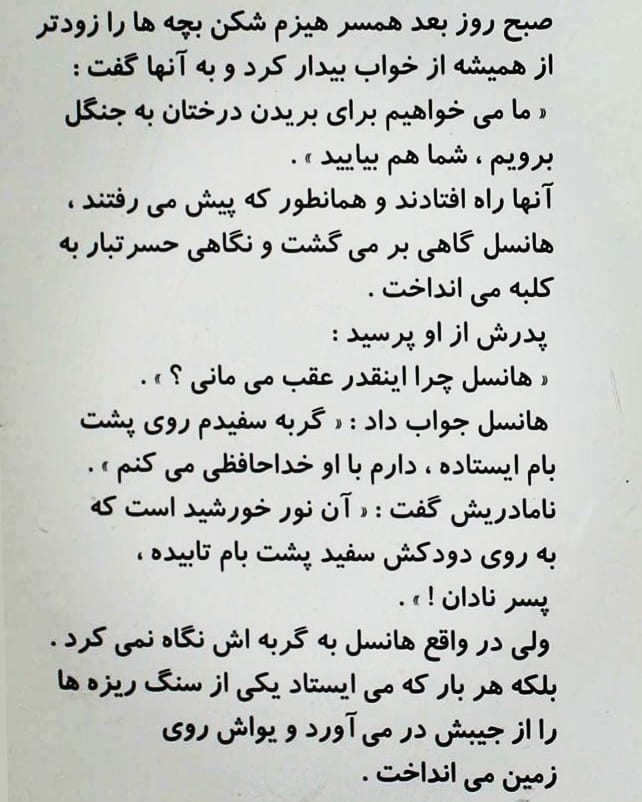 صبح روز بعد همسر هیزم شکن بچه ها را زودتر
از همیشه از خواب بیدار کرد و به آنها گفت :
« ما می خواهیم برای بریدن درختان به جنگل
برویم ، شما هم بیایید » .
آنها راه افتادند و همانطور که پیش می رفتند ،
هانسل گاهی بر می گشت و نگاهی حسرتبار به
کلبه می انداخت .
پدرش از او پرسید :
« هانسل چرا اینقدر عقب می مانی ؟ » .
هانسل جواب داد : « گربه سفیدم روی پشت
بام ایستاده ، دارم با او خداحافظی می کنم » .
نامادریش گفت : « آن نور خورشید است که
به روی دودکش سفید پشت بام تابیده ،
پسر نادان ! » .
ولی در واقع هانسل به گربه اش نگاه نمی کرد .
بلکه هر بار که می ایستاد یکی از سنگ ریزه ها
را از جیبش در می آورد و یواش روی
زمین می انداخت .